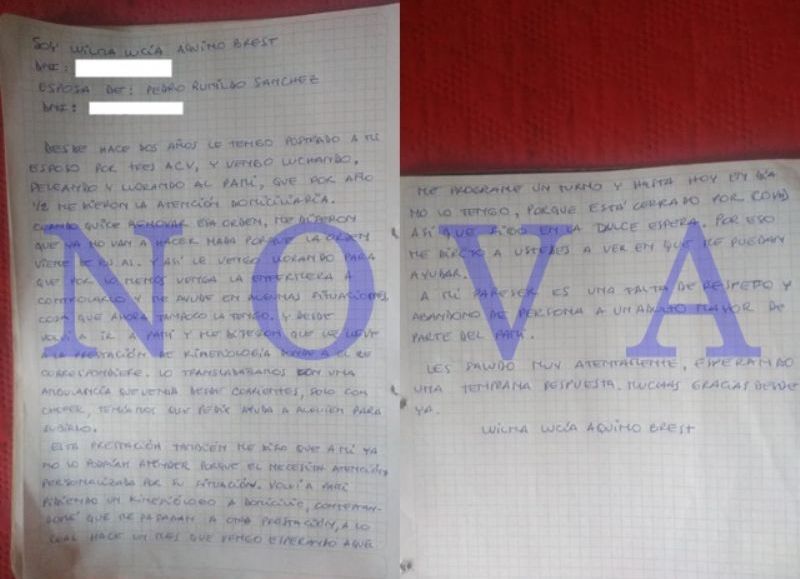 SOY WILMA LUCÍA AQUINO BREST
DNI:
ESPOSA DE: PEDRO RUMILDO SANCHEZ
DNI:
DESDE HACE DOS AÑOS LE TENGO POSTRADO A MI
ESPOSO POR TRES ACV, Y VENGO LUCHANDO,
PELEANDO Y LLORANDO AL PAMI, QUE POR AÑO
1/2 ME DIERON LA ATENCIÓN DOMICILIARIA.
CUANDO QUICE RENOVAR ESA ORDEN, ME DIJERON
QUE YA NO VAN A HACER NADA PORQUE LA ORDEN
VIENE DE BS. AS. Y ASÍ LE VENGO LLORANDO PARA
QUE POR LO MENOS VENGA LA ENFERMERA A
CONTROLARLO, ME AYUDE EN ALGUNAS SITUACIONES,
COSA QUE AHORA TAMPOCO LA TENGO. Y DESDE
VOLVÍ A IR A PAMI Y ME DIJERON QUE LE LLEVE
A LA PRESTACIÓN DE KINESIOLOGÍA DONDE A EL LE
CORRESPONDIERE. LO TRANSLADABAMOS CON UNA
AMBULANCIA QUE VENÍA DESDE CORRIENTES, SOLO CON
CHOFER, TENÍAMOS QUE PEDIR AYUDA A ALGUIEN PARA
SUBIRLO.
ESTA PRESTACIÓN TAMBIÉN ME DIJO QUE A MÍ YA
NO LO PODRÍAN ATENDER PORQUE EL NECESITA ATENCIÓN
PERSONALIZADA POR SU SITUACIÓN. VOLVÍ A PAMI
PIDIENDO UN KINESIÓLOGO A DOMICILIO, CONTESTAN-
DOME QUE ME PASABAN A OTRA PRESTACIÓN, A LO
CUAL HACE UN MES QUE VENGO ESPERANDO AQUE
ME PROGRAME UN TURNO Y HASTA HOY EN DÍA
NO LO TENGO, PORQUE ESTÁ CERRADO POR COVID
ASÍ QUE SIGO EN LA DULCE ESPERA. POR ESO
ME DIRIJO A USTEDES A VER EN QUE ME PUEDAN
AYUDAR.
A MI PARESER ES UNA FALTA DE RESPETO Y
ABANDONO DE PERSONA A UN ADULTO MAYOR DE
PARTE DEL PAMI.
LES SALUDO MUY ATENTAMENTE, ESPERANDO
UNA TEMPRANA RESPUESTA. MUCHAS GRACIAS DESDE
YA.
WILMA LUCÍA AQUINO BREST
NOVA